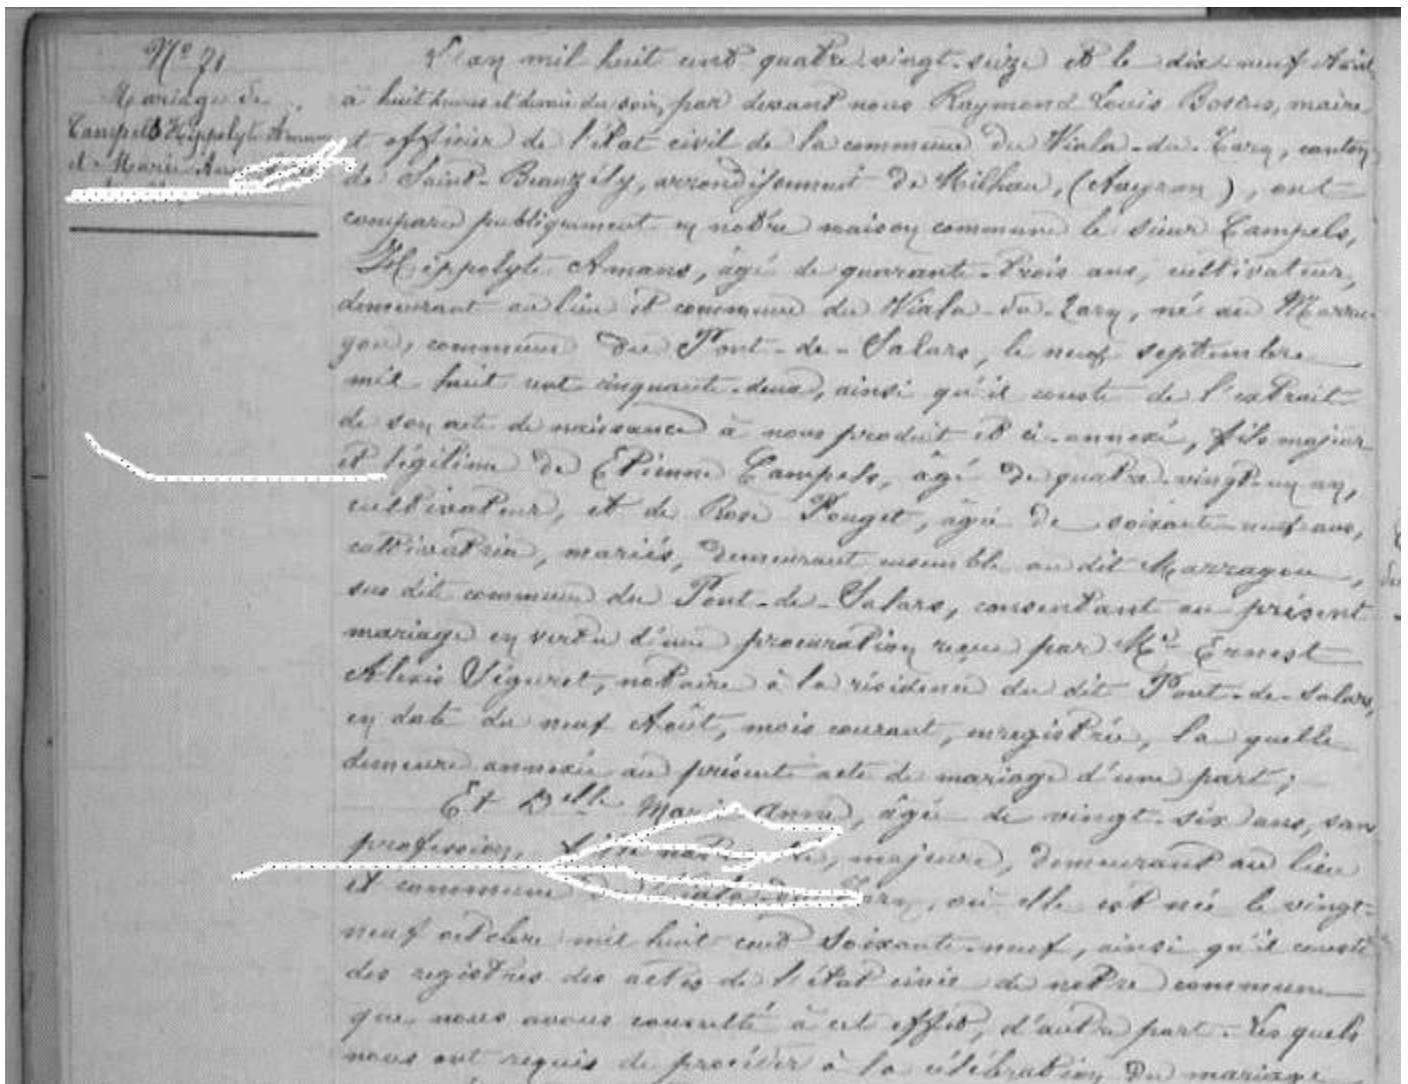 N° 71
Mariage de
Campels Hippolyte Amans
et Marie
L'an mil huit cent quatre-vingt-seize et le dix-neuf Août
à huit heures et demie du soir, par devant nous Raymond Louis maire
et officier de l'état civil de la commune du Viala-du-Tarn, canton
de Saint-Beauzély, arrondissement de Milhau, (Aveyron), ont
comparu publiquement en notre maison commune le sieur Campels,
Hippolyte Amans, âgé de quarante-trois ans, cultivateur,
demeurant au lieu et commune du Viala-du-Tarn, né au Marra-
gou, commune du Pont-de-Salars, le neuf septembre
mil huit cent cinquante-deux, ainsi qu'il conste de l'extrait
de son acte de naissance à nous produit et ci-annexé, fils majeur
et légitime de Etienne Campels, âgé de quatre-vingt-un an,
cultivateur, et de Rose Pouget, âgée de soixante-neuf ans,
cultivatrice, mariés, demeurant ensemble au dit Marragou,
sus dite commune du Pont-de-Salars, consentant au présent
mariage en vertu d'une procuration reçue par Me Ernest
Alexis Séguret, notaire à la résidence du dit Pont-de-Salars,
en date du neuf Août, mois courant, enregistrée, la quelle
demeure annexée au présente acte de mariage d'une part;
Et Delle Marie Anne, âgée de vingt-six ans, sans
profession, majeure, demeurant au lieu
et commune du Viala-du-Tarn, où elle est née le vingt-
neuf octobre mil huit cent soixante-neuf, ainsi qu'il conste
des registres des actes de l'état civil de notre commune
que nous avons consulté à cet effet, d'autre part. Les quels
nous ont requis de procéder à la célébration du mariage